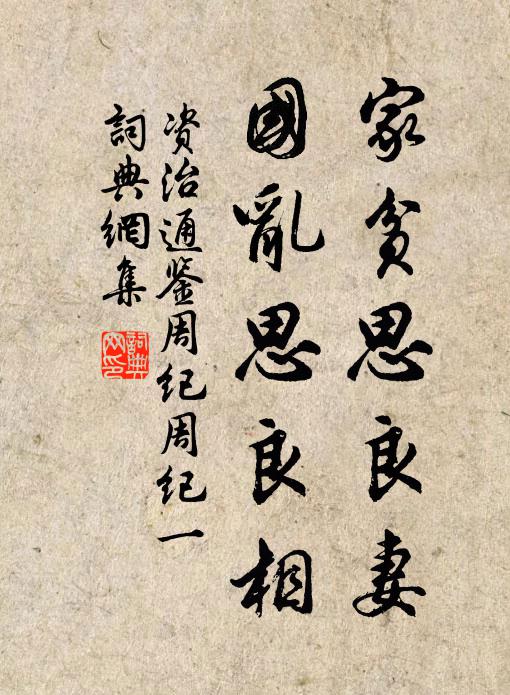 家贫思良妻
國亂思良相
资治通鉴周纪周纪一
詞典網集
詞典网印